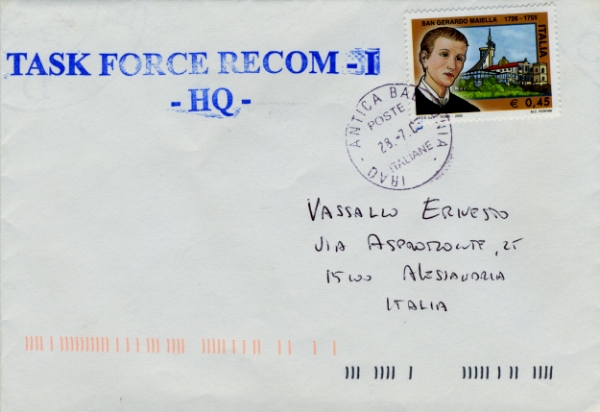 TASK FORCE RECOM - I
- HQ -
SAN GERARDO MAIELLA 1726 - 1755
ITALIA
€ 0,45
IRAQ - ANTICA BABILONIA
POSTE
28.-7.
ITALIANE
VASSALLO ERNESTO
VIA ASPROMONTE, 25
15100 ALESSANDRIA
ITALIA